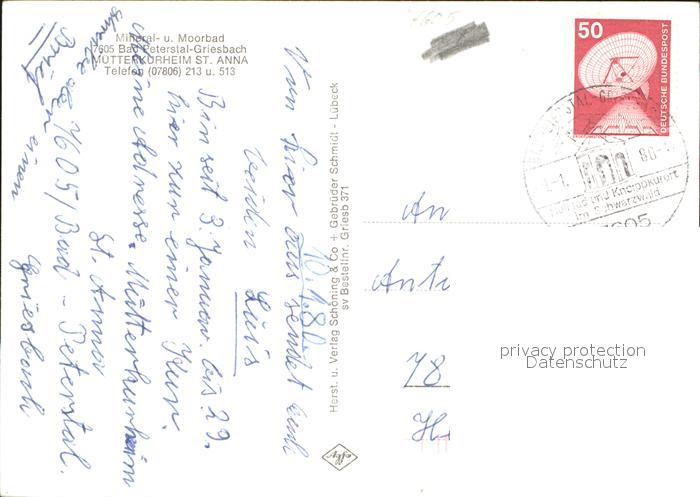 Mineral- u. Moorbad
7605 Bad Peterstal-Griesbach
MÜTTERKURHEIM ST. ANNA
Telefon (07806) 213 u. 513
7605
50
DEUTSCHE BUNDESPOST
80
und Kneippkurort
im Schwarzwald
7605
10.1.80
Von hier aus sendet euch
beiden Luis
Bin seit 3. Januar bis 29.
hier zur einer Kur.
Meine Adresse Mütterkurheim
St. Anna
7605 / Bad-Peterstal
Griesbach
einen
Herst. u. Verlag Schöning & Co + Gebrüder Schmidt - Lübeck
sv Bestellnr. Griesb 371
An
78
privacy protection
Datenschutz